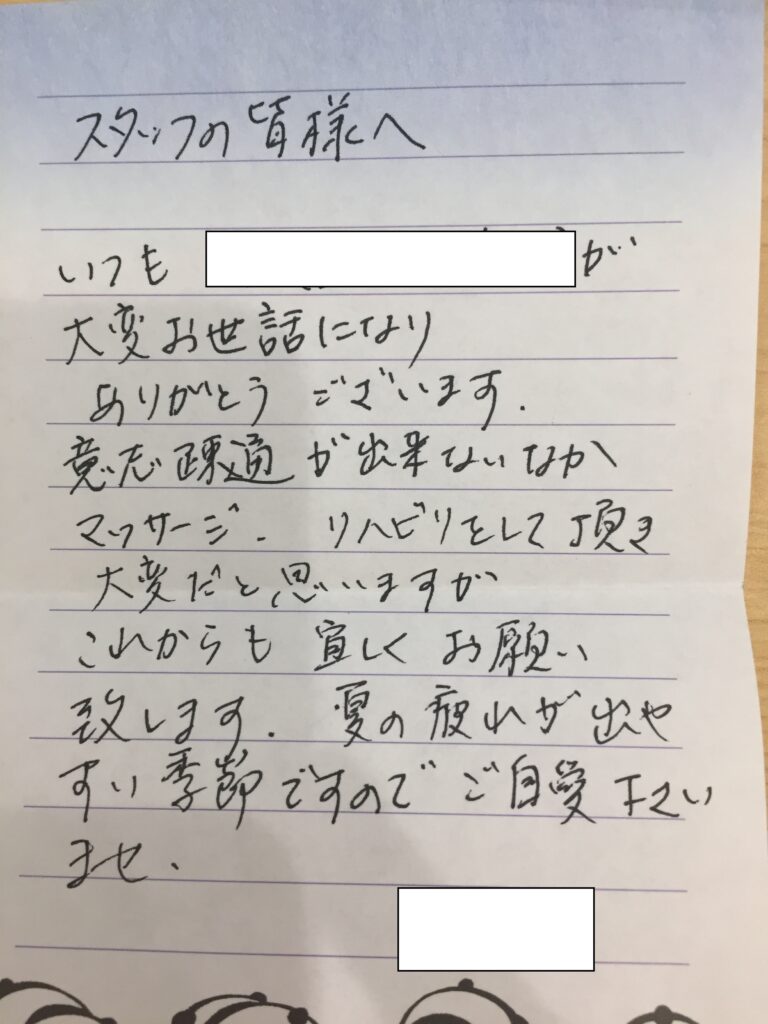 スタッフの皆様へ
いつも が
大変お世話になり
ありがとう ございます.
意志疎通が出来ないなか
マッサージ. リハビリをして頂き
大変だと思いますが
これからも 宜しく お願い
致します. 夏の疲れが出や
すい季節ですので ご自愛下さい
ませ.